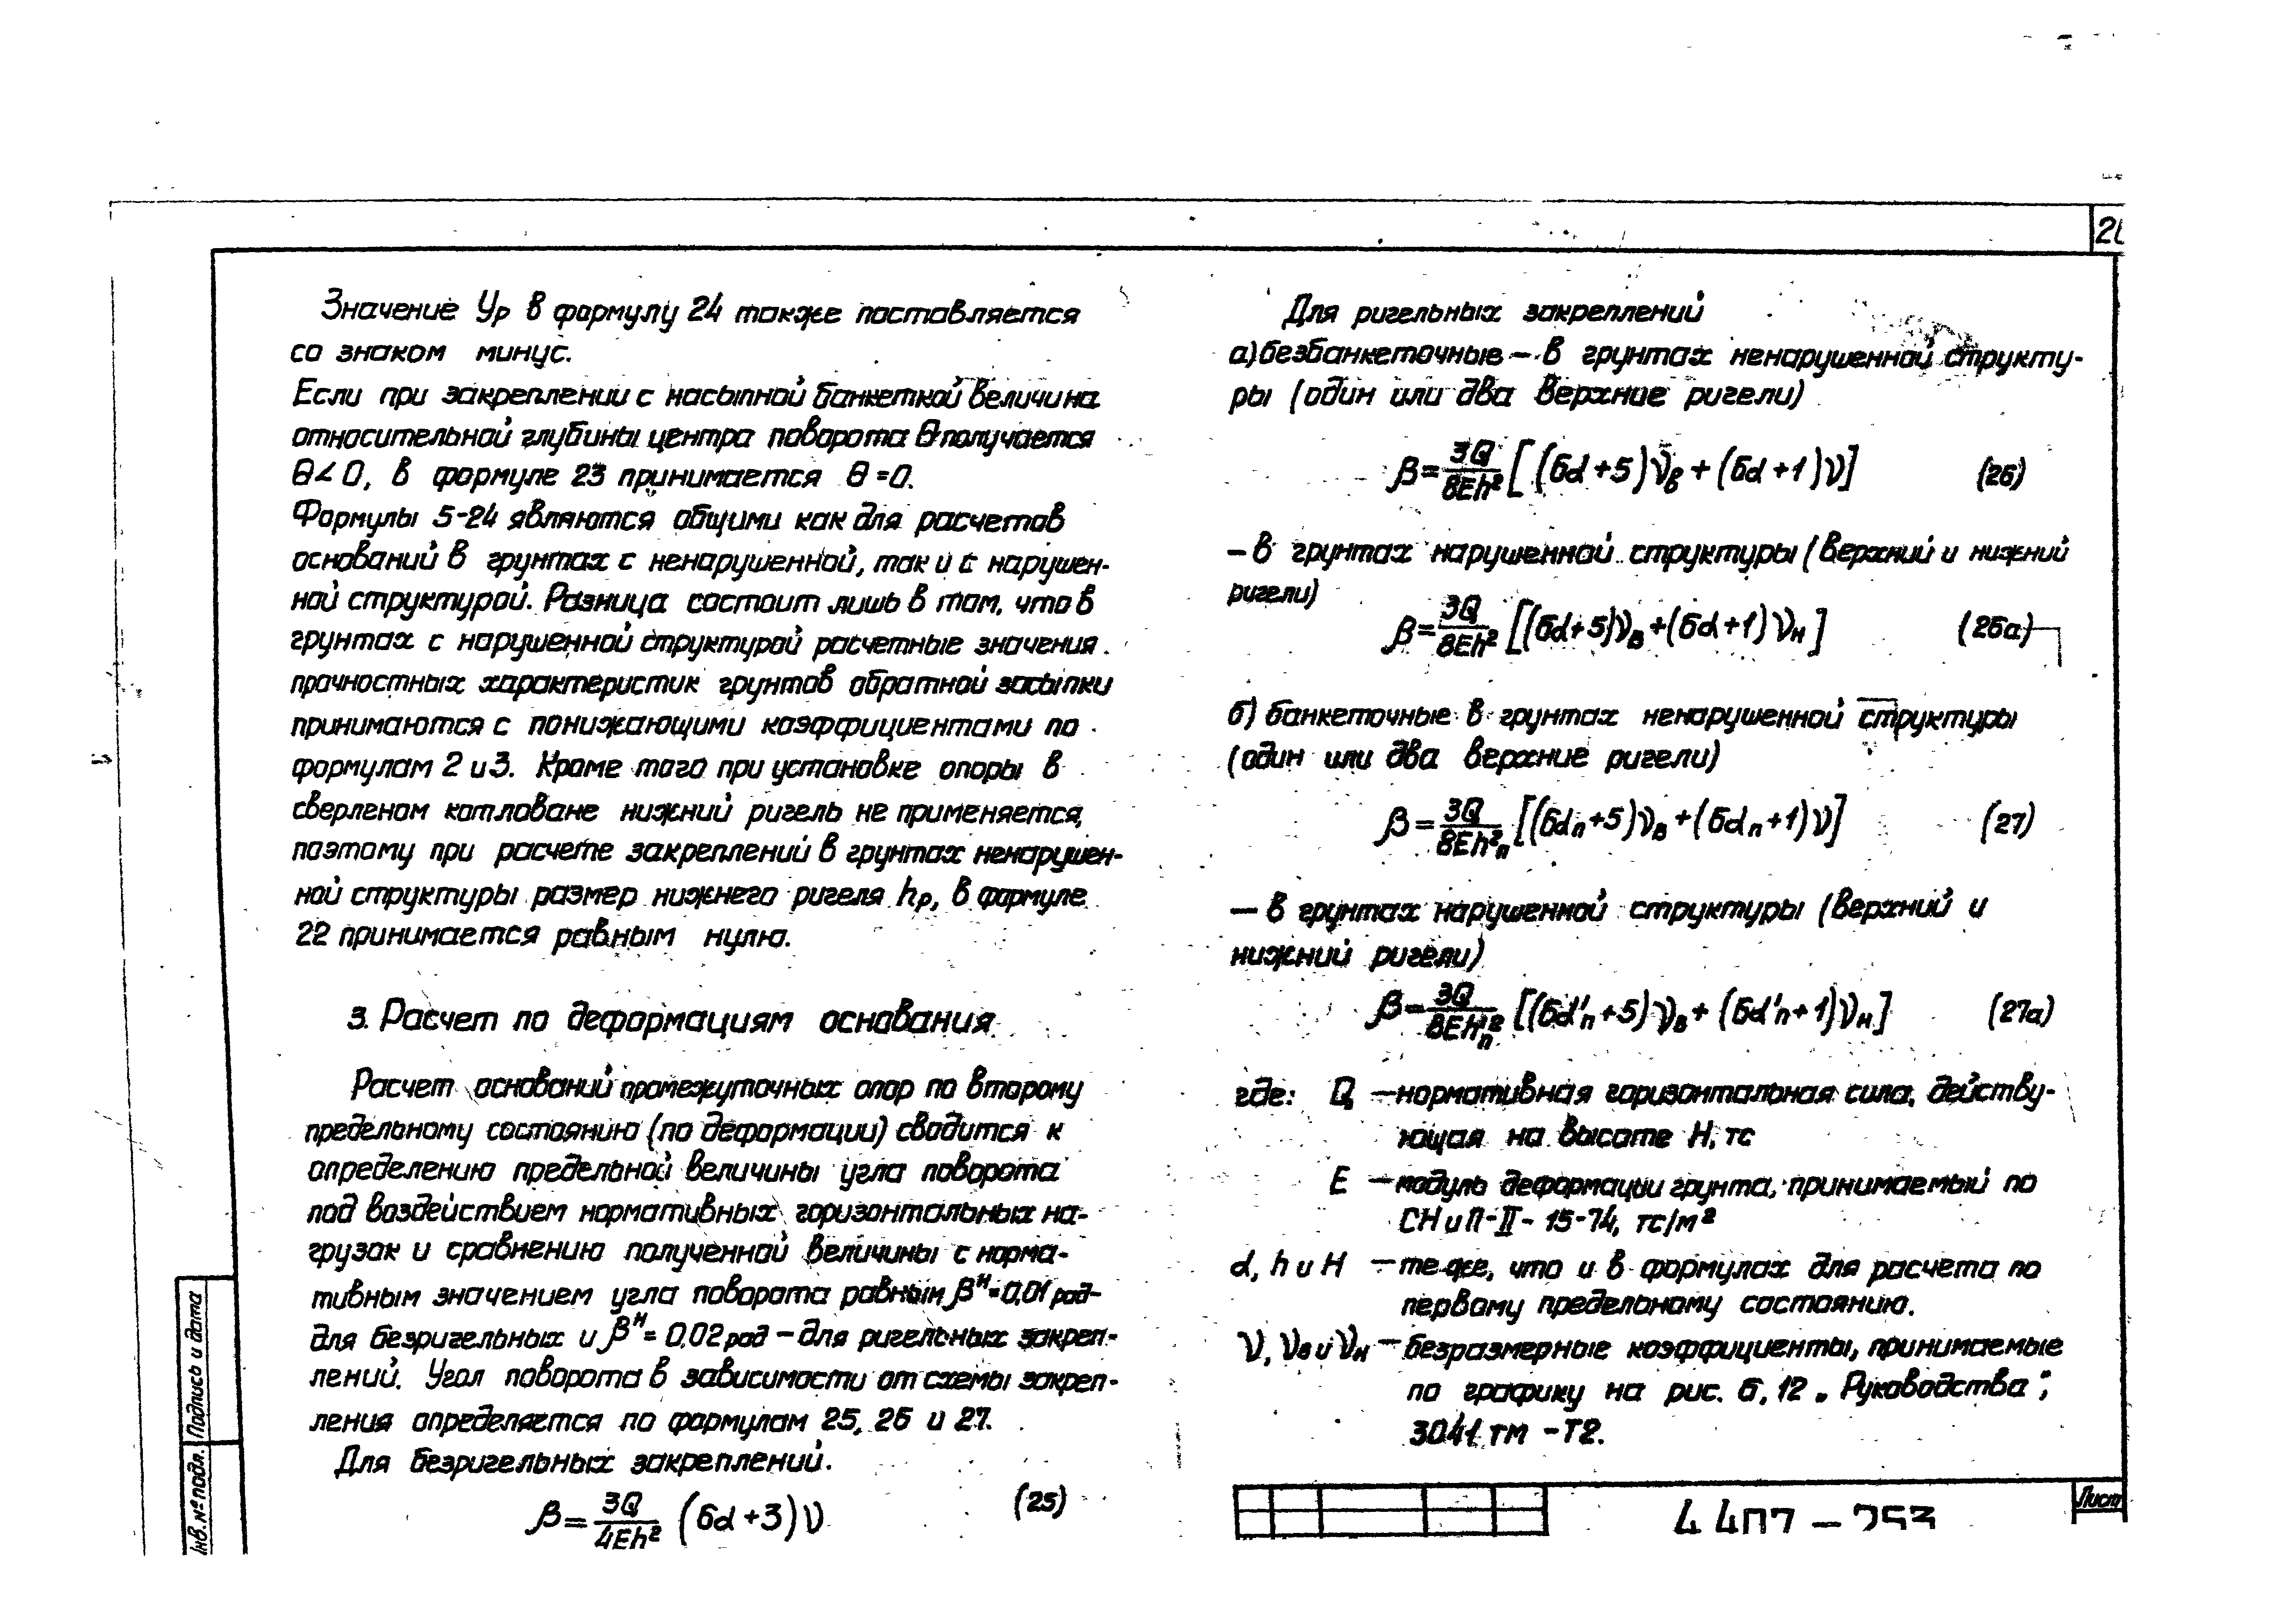 Значение Ур в формулу 24 также поставляется
со знаком минус.
Если при закреплении с насыпной банкеткой величина
относительной глубины центра поворота θ получается
θ < 0, в формуле 23 принимается θ = 0.
Формулы 5-24 являются общими как для расчетов
оснований в грунтах с ненарушенной, так и с нарушен-
ной структурой. Разница состоит лишь в том, что в
грунтах с нарушенной структурой расчетные значения
прочностных характеристик грунтов обратной засыпки
принимаются с понижающими коэффициентами по
формулам 2 и 3. Кроме того при установке опоры в
сверленом котловане нижний ригель не применяется,
поэтому при расчете закреплений в грунтах ненарушен-
ной структуры размер нижнего ригеля hр, в формуле
22 принимается равным нулю.
3. Расчет по деформациям основания
Расчет оснований промежуточных опор по второму
предельному состоянию (по деформации) сводится к
определению предельной величины угла поворота
под воздействием нормативных горизонтальных на-
грузок и сравнению полученной величины с норма-
тивным значением угла поворота равным βᴴ = 0,01 рад-
для безригельных и βᴴ = 0,02 рад - для ригельных закреп-
лений. Угол поворота в зависимости от схемы закреп-
ления определяется по формулам 25, 26 и 27.
Для безригельных закреплений.
β = 3Q/4Eh² (6α + 3) ν (25)
Для ригельных закреплений
а) безбанкеточные - в грунтах ненарушенной структу-
ры (один или два верхние ригели)
β = 3Q/8Eh² [(6α + 5) νв + (6α + 1) ν] (26)
- в грунтах нарушенной структуры (верхний и нижний
ригели)
β = 3Q/8Eh² [(6α + 5) νв + (6α + 1) νн] (26а)
б) банкеточные в грунтах ненарушенной структуры
(один или два верхние ригели)
β = 3Q/8Eh²п [(6αп + 5) νв + (6αп + 1) ν] (27)
- в грунтах нарушенной структуры (верхний и
нижний ригели)
β = 3Q/8Eh'²п [(6α'п + 5) νв + (6α'п + 1) νн] (27а)
где: Q - нормативная горизонтальная сила, действу-
ющая на высоте Н, тс
Е - модуль деформации грунта, принимаемый по
СНиП-II-15-74, тс/м²
α, h и H - те же, что и в формулах для расчета по
первому предельному состоянию.
ν, νв и νн - безразмерные коэффициенты, принимаемые
по графику на рис. 6, 12 „Руководства";
3041 тм - Т2.
Подпись и дата
Инв. № подл.
Лист